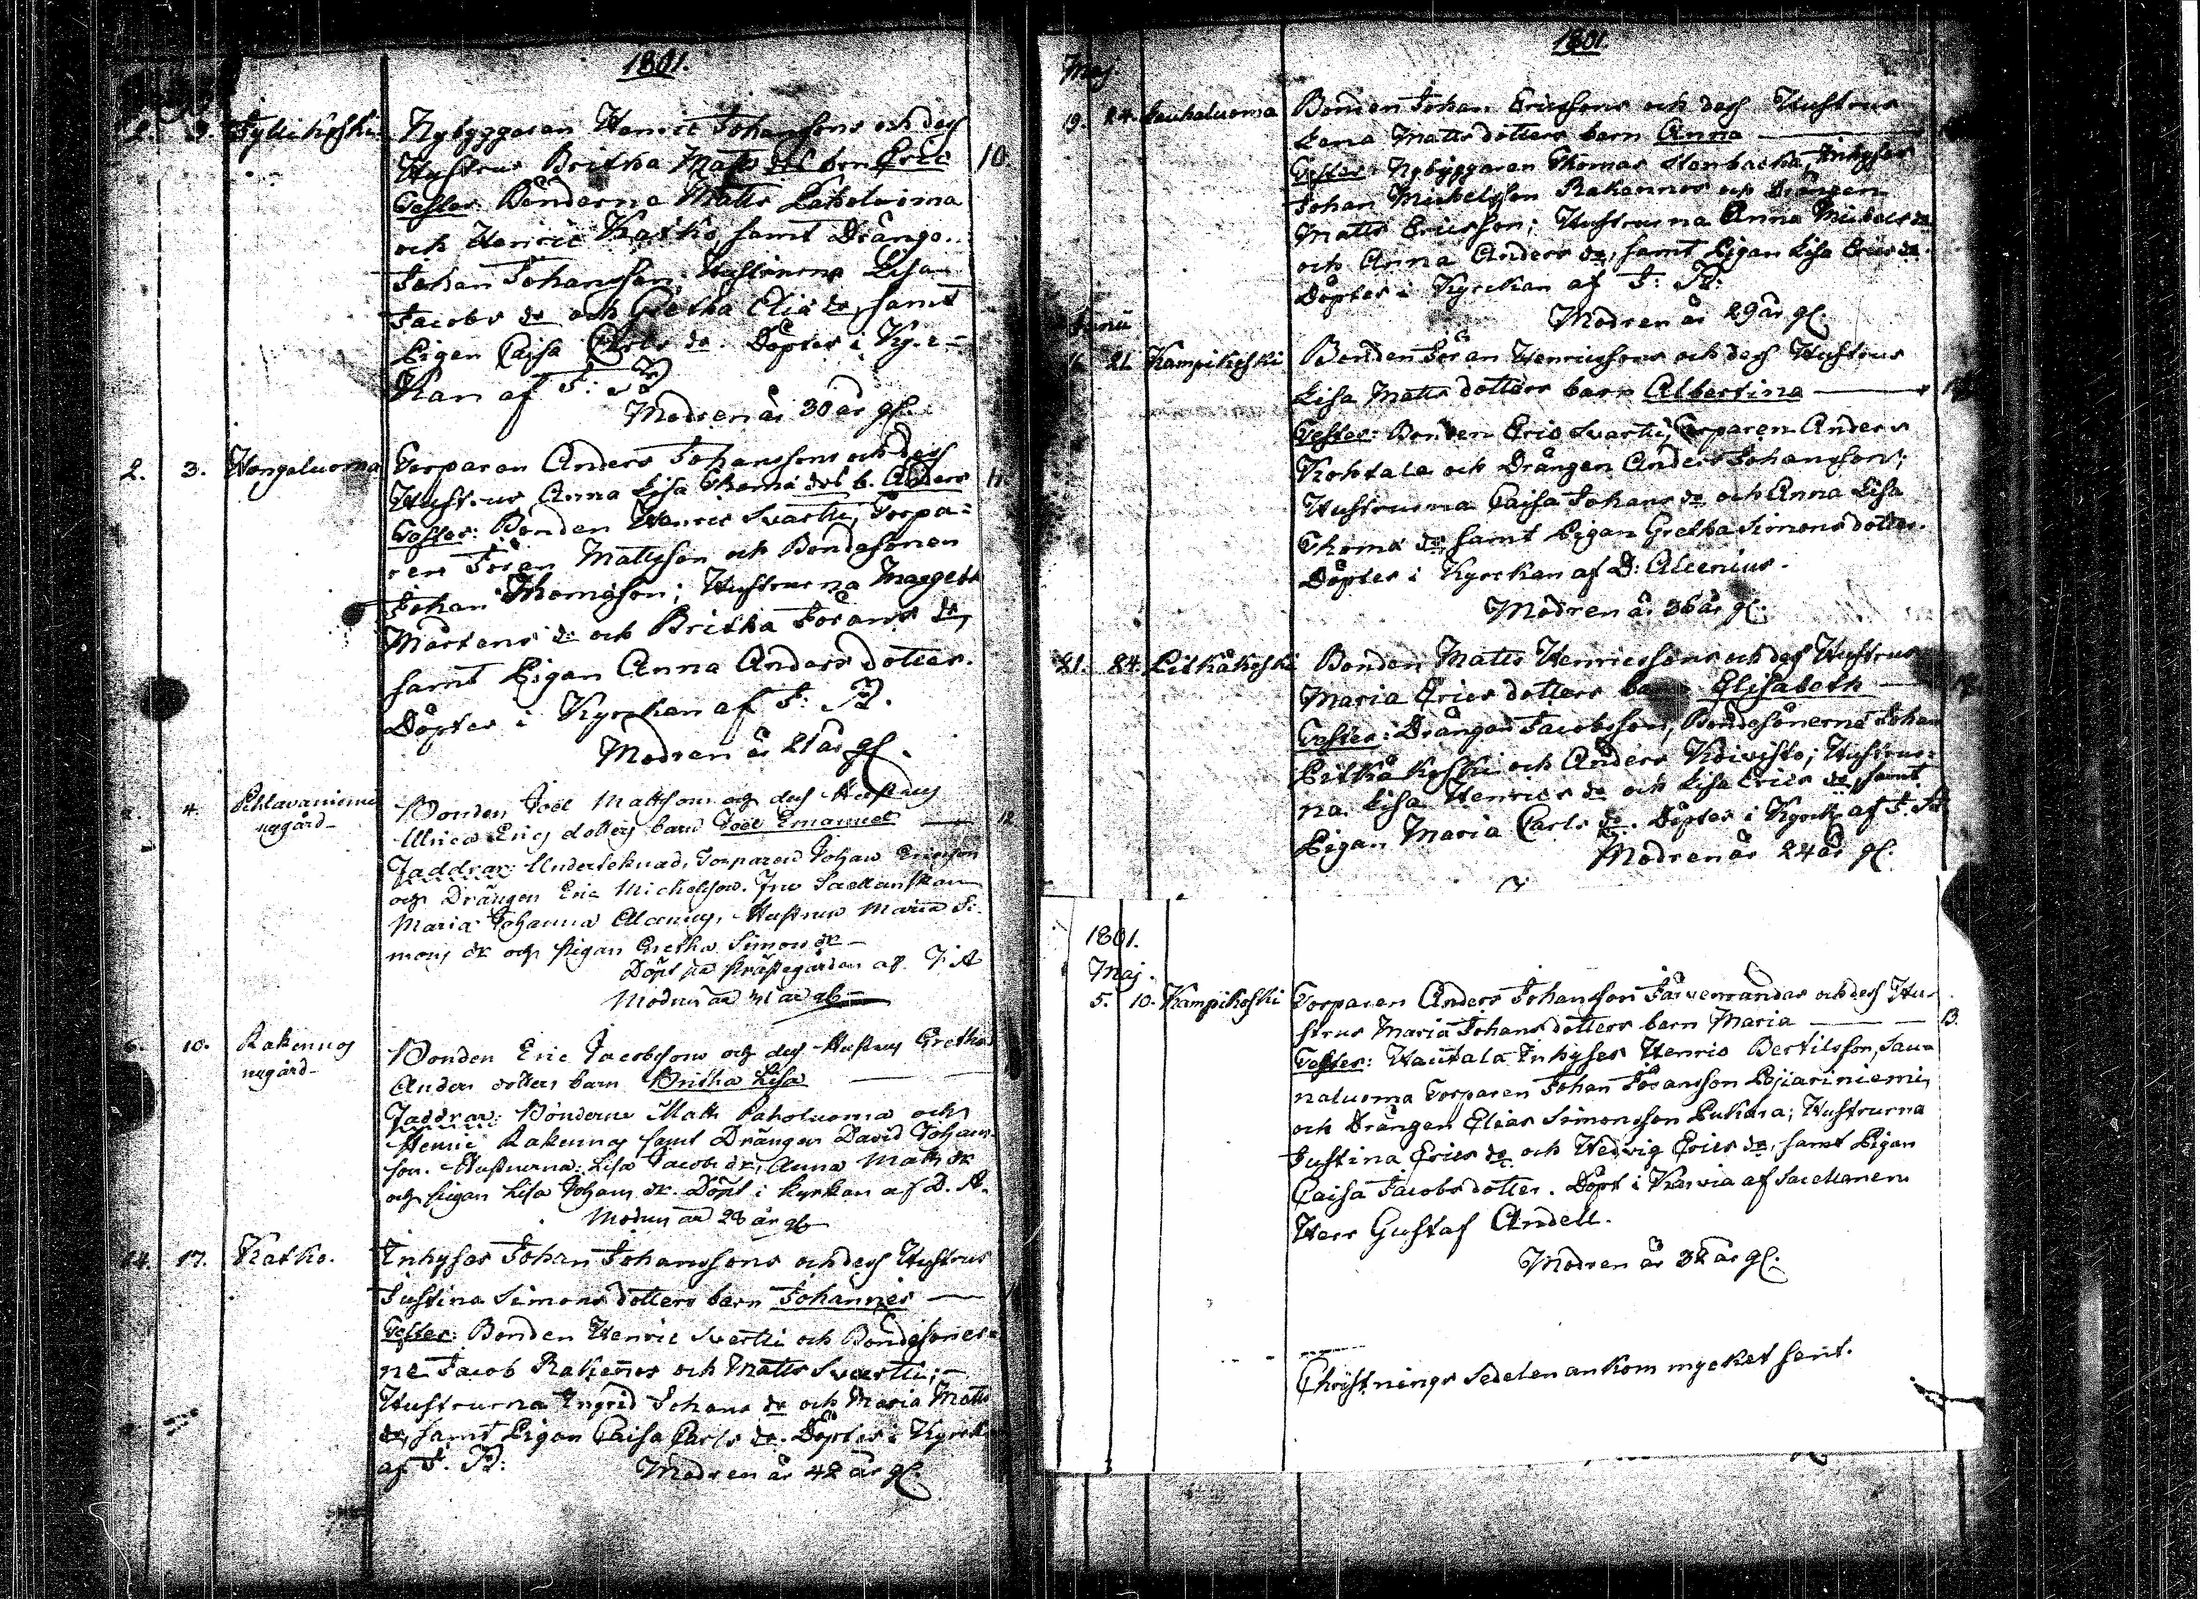 1801.
2. 3. Jylhikoski. Nybyggaren Henric Johanssons och dess
Hustrus Britha Matts dot. barn Eric 10.
Testes: Bönderne Matts Paholuoma
och Henric Katko samt Drängen
Johan Johansson; Hustrurna Lisa
Jacobs dr och Gretha Eliæ dr, samt
Pigan Caisa Carls dr. Döptes i Kyrc-
kan af J: B
Modren är 30 år gl.
2. 3. Hongoluoma Torparen Anders Johanssons och dess
Hustrus Anna Lisa Thomæ dot. b. Anders 11.
Testes: Bonden Henric Svartti, Torpa-
ren Jöran Mattsson och Bondesonen
Johan Thomæson; Hustrurna Marget
Mårtens dr och Britha Jörans dr,
samt Pigan Anna Anders dotter.
Döptes i Kyrckan af J: B.
Modren är 21 år gl.
2. 4. Pihlavaniemi
nygård
Bonden Joel Mattsons och dess Hustrus
Ulrica Erics dotters barn Joel Emanuel 12
Faddrar: Underteknad, Torparen Johan Ericsson
och Drängen Eric Michelsson. Fru Sacellanskan
Maria Johanna Alcenius, Hustrun Maria Si-
mons dr och Pigan Gretha Simons dr
Döpt på Prästegården af J. A
Modren är 31 år gl
6. 10. Rakennos
nygård
Bonden Eric Jacobssons och dess Hustrus Gretha
Anders dotters barn Britha Lisa
Faddrar: Bönderne Matts Paholuoma och
Henric Rakennos samt Drängen David Johans-
son. Hustrurna: Lisa Jacobs dr, Anna Matts dr
och Pigan Lisa Johans dr. Döpt i kyrkan af D. A.
Modren är 28 år gl
14. 17. Katko. Inhyses Johan Johanssons och dess Hustrus
Justina Simons dotters barn Johannes
Testes: Bonden Henric Svartti och Bondesöner-
ne Jacob Rakennos och Matts Svartti;
Hustrurna Ingrid Johans dr och Maria Matts
dr, samt Pigan Caisa Carls dr. Döptes i Kyrck.
af J. B:
Modren är 42 år gl.
1801.
Maj.
19. 24. Sauhaluoma Bonden Johan Ericssons och dess Hustrus
Lena Matts dotters barn Anna
Testes: Nybyggaren Thomas Stenbacka, Inhyses
Johan Michelsson Rakennos och Drängen
Matts Ericsson; Hustrurna Anna Michels dr
och Anna Anders dr, samt Pigan Lisa Erics dr.
Döptes i Kyrckan af J: B:
Modren är 29 år gl.
Junii
21. Kampikoski Bonden Jöran Henricssons och dess Hustrus
Lisa Matts dotters barn Albertina
Testes: Bonden Eric Svartti, Torparen Anders
Kohtala och Drängen Anders Johansson;
Hustrurna Caisa Johans dr och Anna Lisa
Thomæ dr, samt Pigan Gretha Simons dotter.
Döptes i Kyrckan af D: Alcenius.
Modren är 36 år gl.
21. 24. Pitkäkoski Bonden Matts Henricssons och dess Hustrus
Maria Erics dotters barn Elisabeth
Testes: Drängen Jacobsson, Bondesönerne Johan
Pitkäkoski och Anders Koivisto; Hustrur-
na Lisa Henrics dr och Lisa Erics dr, samt
Pigan Maria Carls dr. Döptes i Kyrck. af J. B
Modren är 24 år gl.
1801.
Maj.
5. 10. Kampikoski Torparen Anders Johansson Järvenrandas och dess Hu-
strus Maria Johans dotters barn Maria 13.
Testes: Hautala Inhyses Henric Bertilsson, Sau-
naluoma Torparen Johan Jöransson Pojiariniemi,
och Drängen Elias Simonsson Pukara; Hustrurna
Justina Erics dr och Hedvig Erics dr, samt Pigan
Caisa Jacobs dotter. Döpt i Karvia af Sacellanen
Herr Gustaf Andell.
Modren är 32 år gl.
Christnings Sedelen ankom mycket sent.